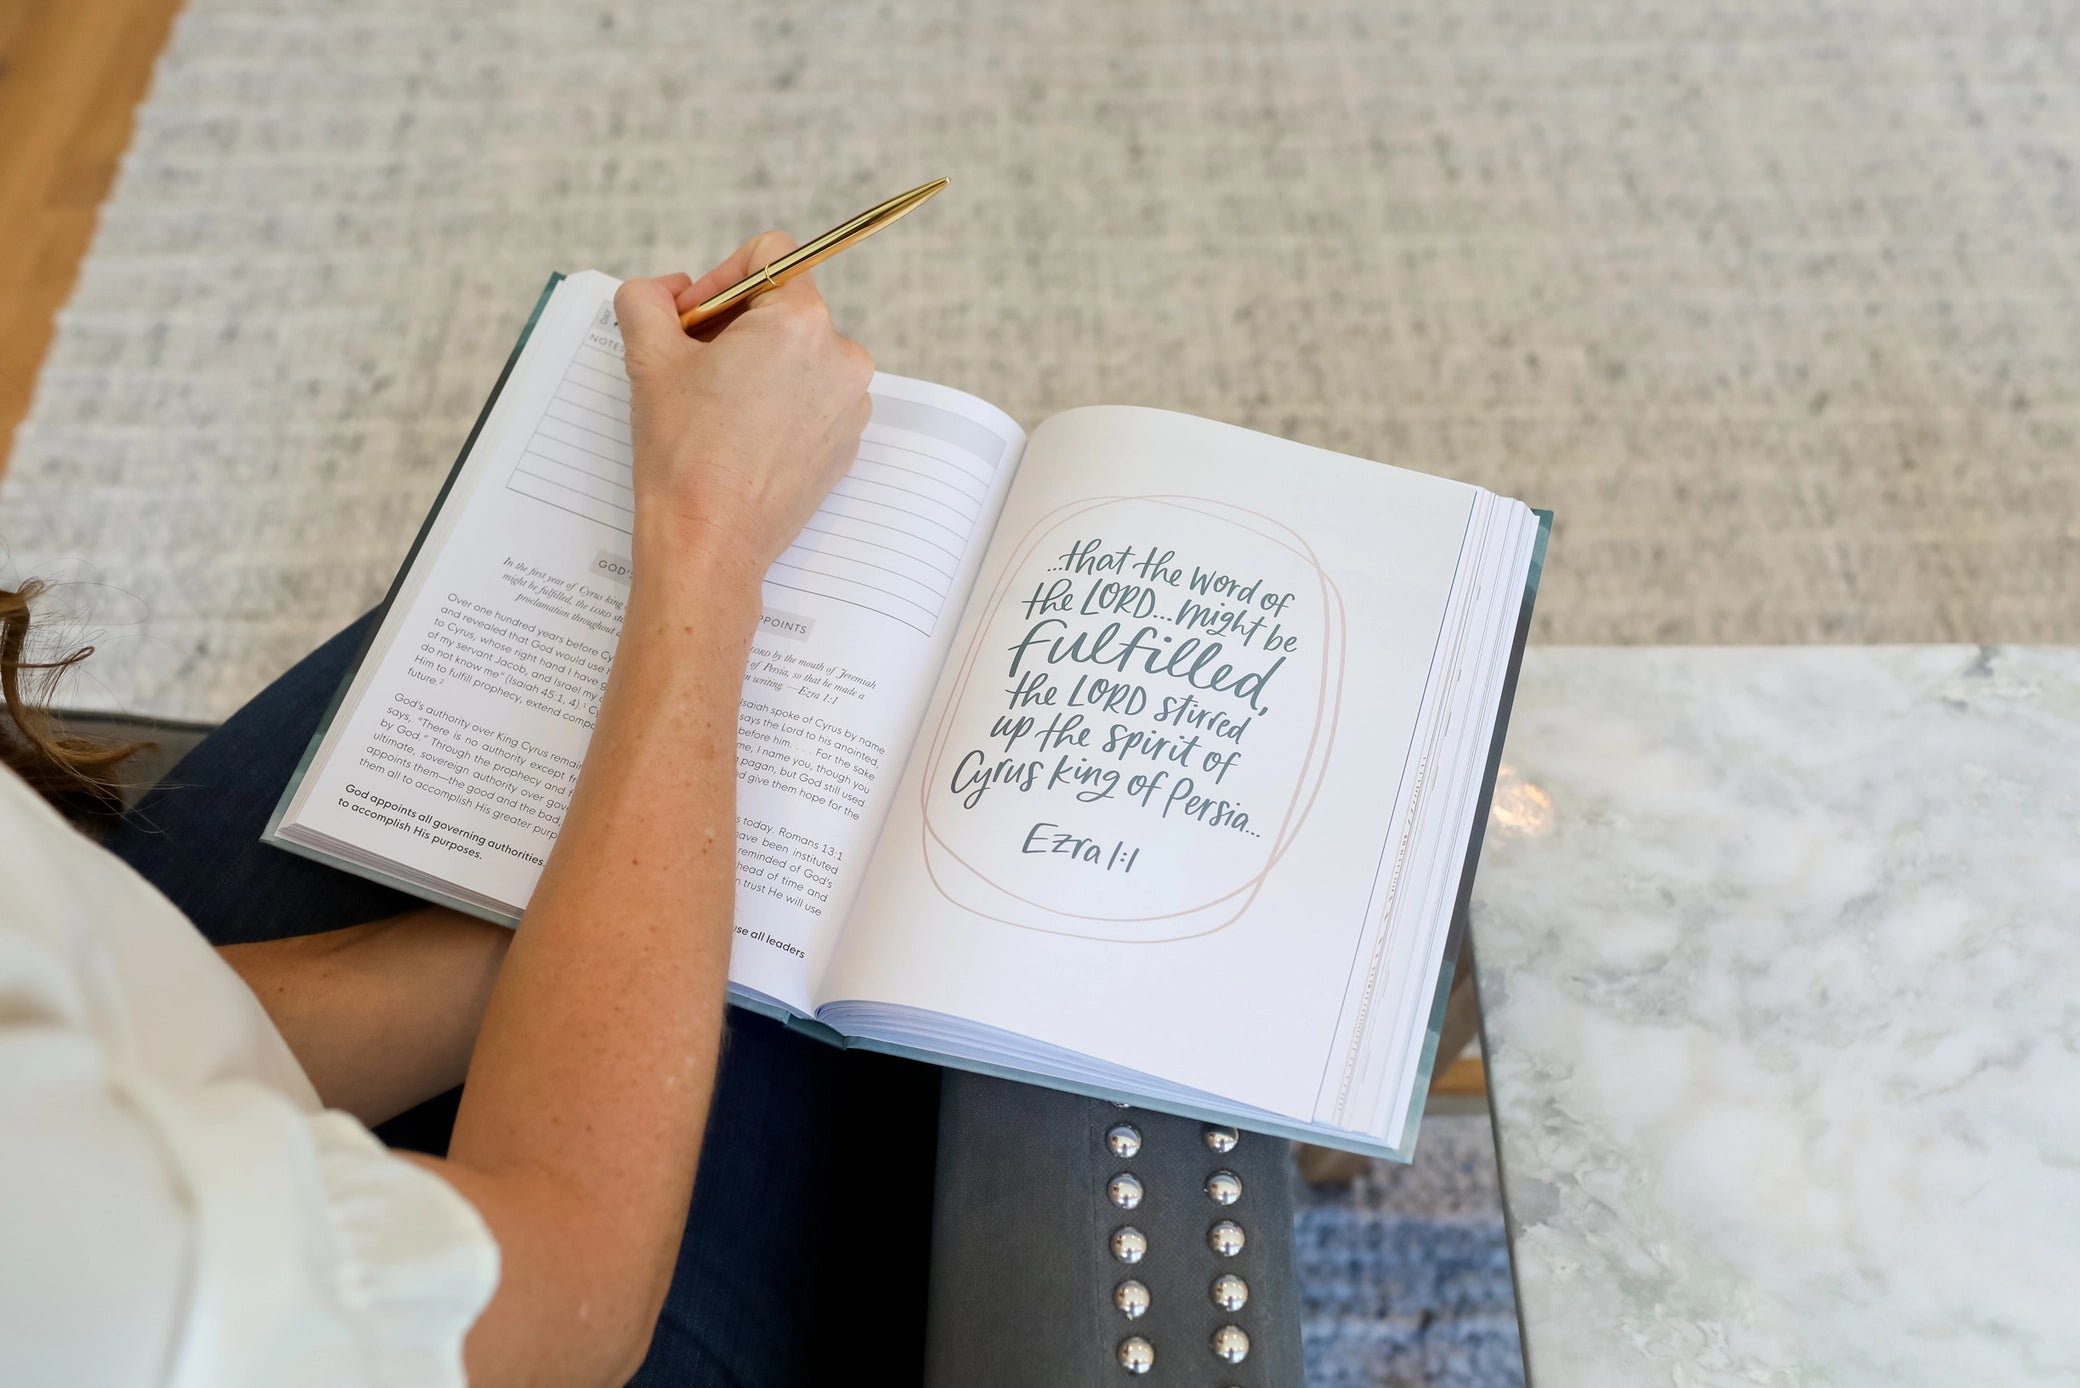 DAY
NOTES
GOD'S
PPOINTS
In the first year of Cyrus king
LORD by the mouth of Jeremiah
might be fulfilled, the LORD
of Persia, so that he made a
proclamation throughout
writing. —Ezra 1:1
Over one hundred years before
saiah spoke of Cyrus by name
and revealed that God would use
says the Lord to his anointed,
to Cyrus, whose right hand I have
before him. . . . For the sake
of my servant Jacob, and Israel my
me, I name you, though you
do not know me" (Isaiah 45:1, 4).¹
pagan, but God still used
Him to fulfill prophecy, extend
give them hope for the
future.²
God's authority over King Cyrus
today. Romans 13:1
says, "There is no authority except
have been instituted
by God." Through the prophecy and
reminded of God's
ultimate, sovereign authority over
head of time and
appoints them—the good and the bad,
trust He will use
them all to accomplish His greater
God appoints all governing authorities.
use all leaders
to accomplish His purposes.
...that the word of
the LORD...might be
fulfilled,
the LORD stirred
up the spirit of
Cyrus king of Persia...
Ezra 1:1